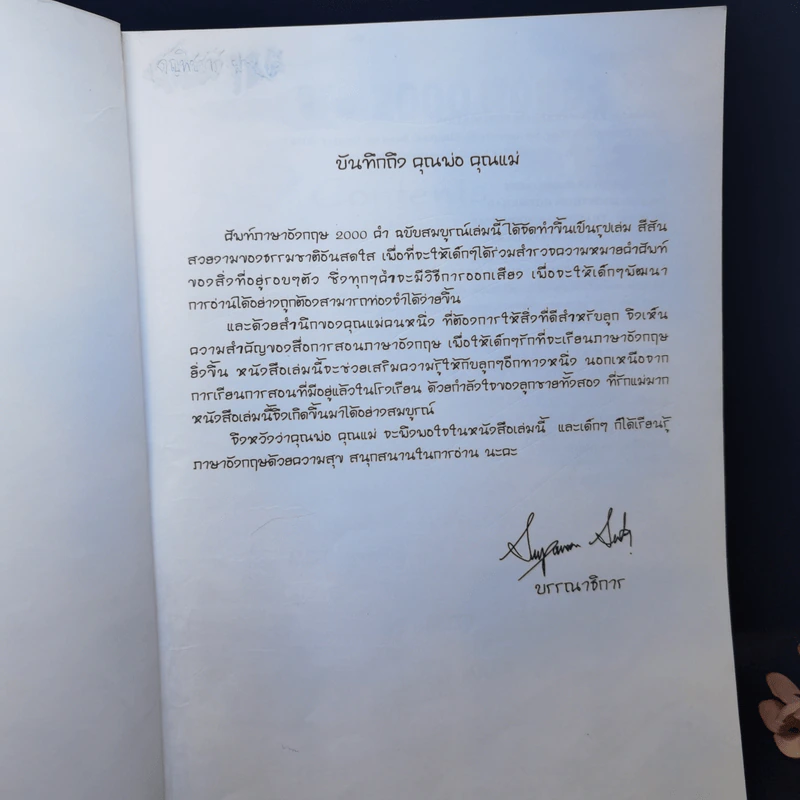 บันทึกถึง คุณพ่อ คุณแม่
ศัพท์ภาษาอังกฤษ 2000 คำ ฉบับสมบูรณ์เล่มนี้ ได้จัดทำขึ้นเป็นรูปเล่ม สีสัน
สวยงามของธรรมชาติอันสดใส เพื่อที่จะให้เด็กๆได้ร่วมสำรวจความหมายคำศัพท์
ของสิ่งที่อยู่รอบๆตัว ซึ่งทุกๆคำจะมีวิธีการออกเสียง เพื่อจะให้เด็กๆพัฒนา
การอ่านได้อย่างถูกต้องสามารถท่องจำได้ง่ายขึ้น
และด้วยสำนึกของคุณแม่คนหนึ่ง ที่ต้องการให้สิ่งที่ดีสำหรับลูก จึงเห็น
ความสำคัญของสื่อการสอนภาษาอังกฤษ เพื่อให้เด็กๆรักที่จะเรียนภาษาอังกฤษ
ยิ่งขึ้น หนังสือเล่มนี้จะช่วยเสริมความรู้ให้กับลูกๆอีกทางหนึ่ง นอกเหนือจาก
การเรียนการสอนที่มีอยู่แล้วในโรงเรียน ด้วยกำลังใจของลูกชายทั้งสอง ที่รักแม่มาก
หนังสือเล่มนี้จึงเกิดขึ้นมาได้อย่างสมบูรณ์
จึงหวังว่าคุณพ่อ คุณแม่ จะพึงพอใจในหนังสือเล่มนี้ และเด็กๆ ก็ได้เรียนรู้
ภาษาอังกฤษด้วยความสุข สนุกสนานในการอ่าน นะคะ
บรรณาธิการ